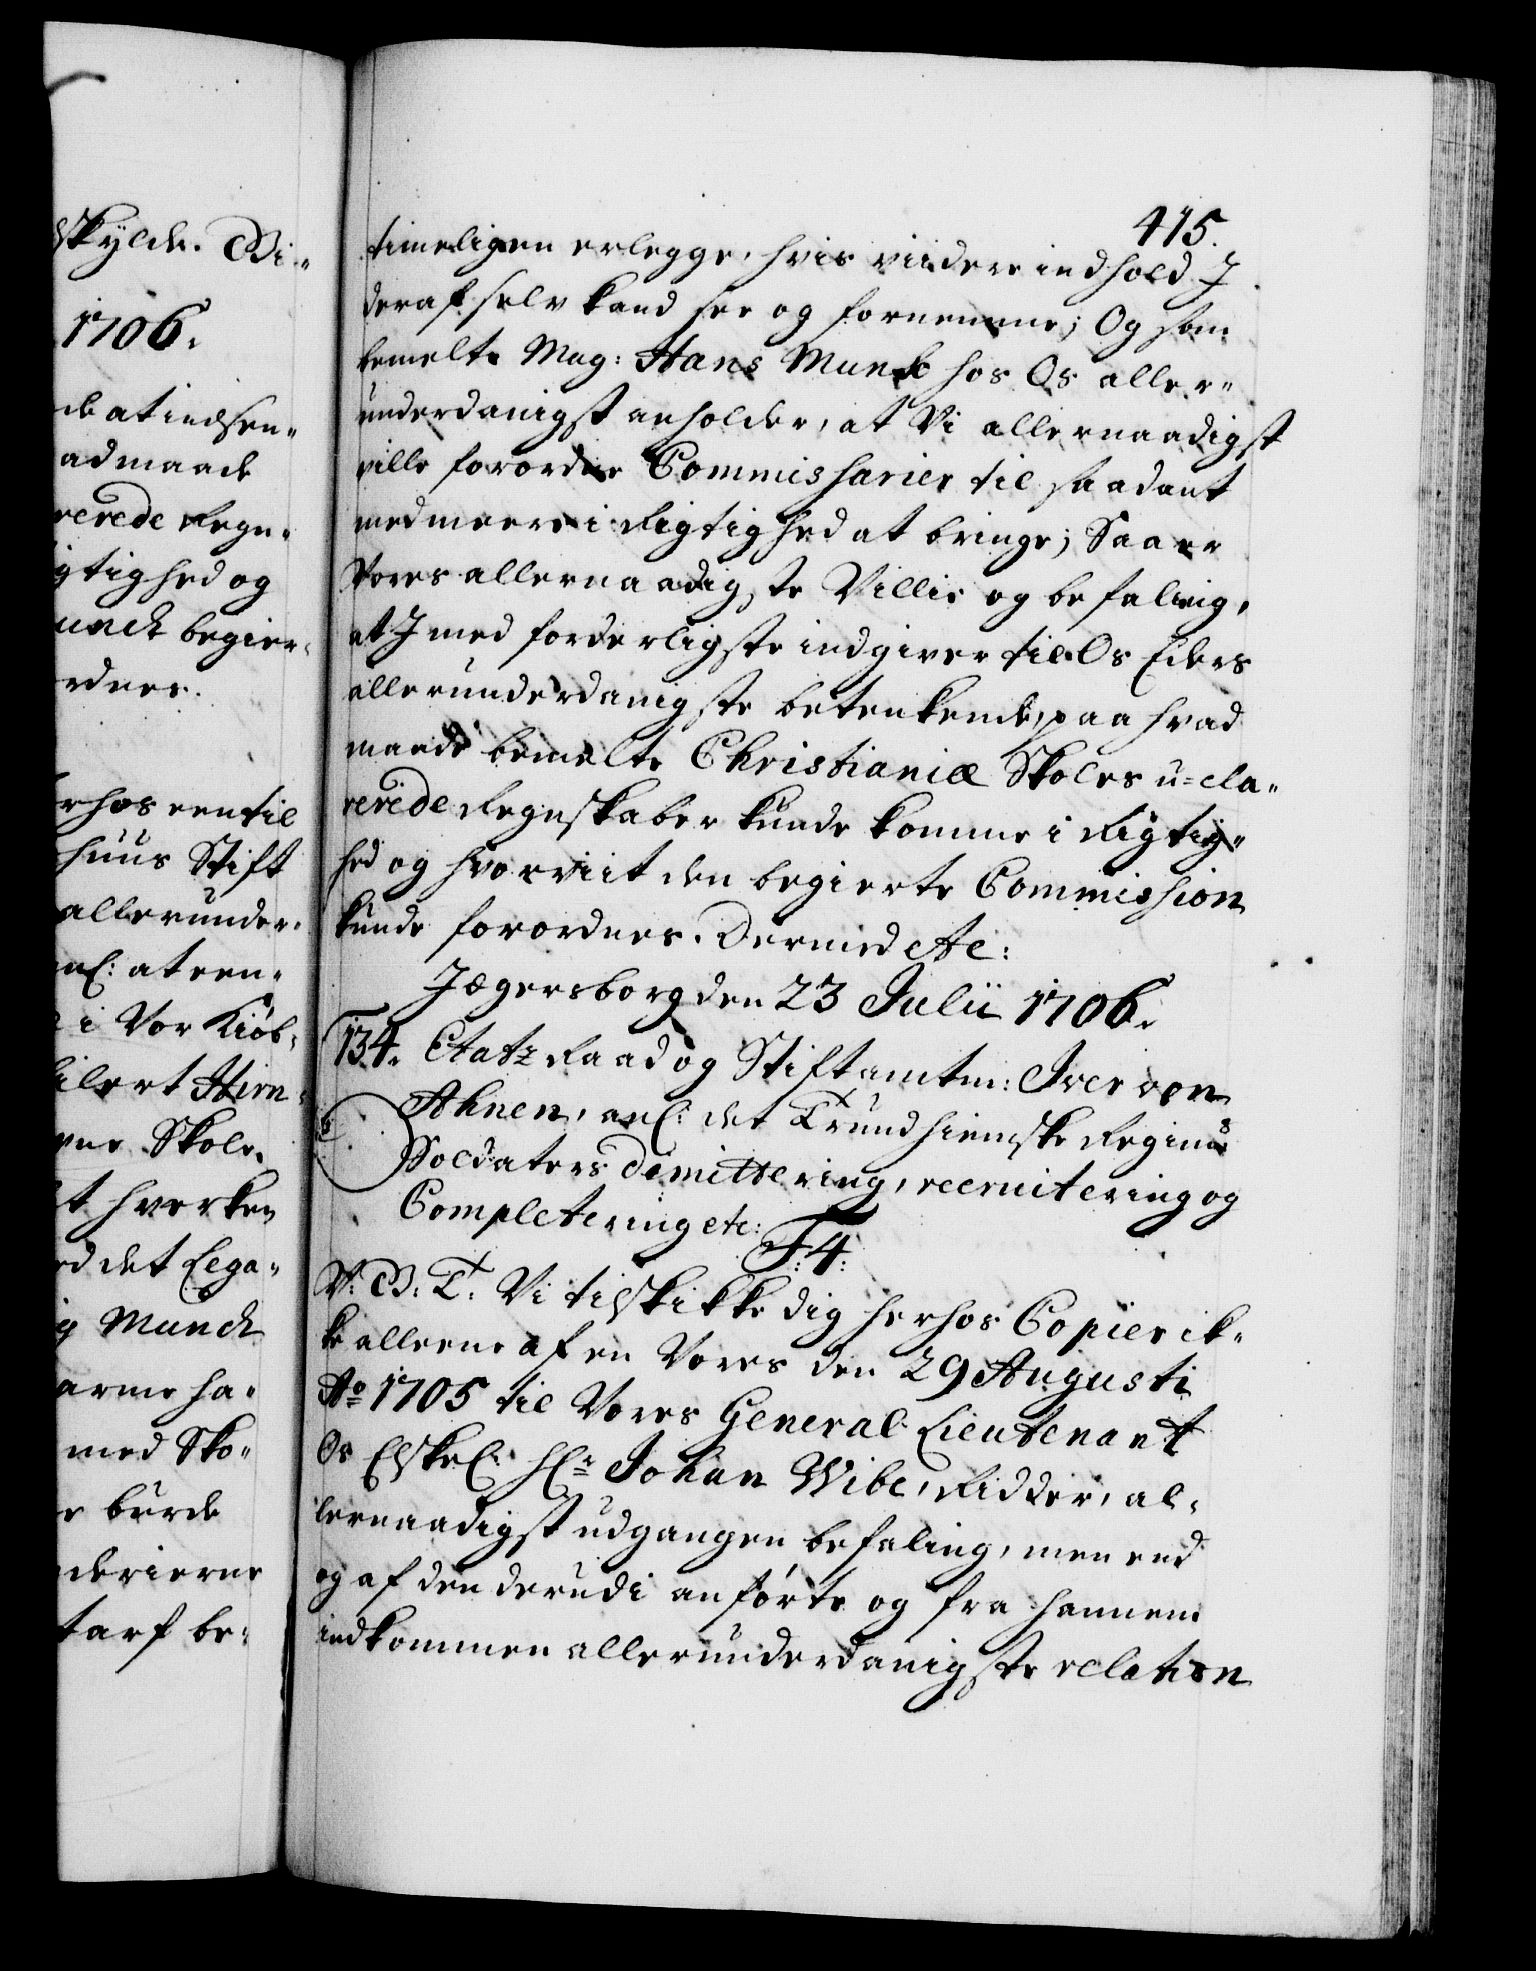 skylde. Bi-
1706.
de at indsen-
ad maade
rerede Regn-
gtighed og
unck begier-
rdnes.
rhos een til
huus Stift
allerunder-
anl: at een-
i Vor Kiøb-
ilert Hirn-
ne Skole.
t hverken
ed det Lega-
g Munck
arme ha-
med Sko-
e burde
derierne
tarf be-
415.
timeligen erlegge, hvis viidere indhold I
deraf self kand see og fornemme; Og som
bemelte Mag: Hans Munk hos Os aller-
underdanigst anholder, at Vi allernaadigst
ville forordne Commissarier til saadant
med meere i Rigtighed at bringe; Saa er
Vores allernaadigste Villie og befaling,
at I med forderligste indgiver til Os Eders
allerunderdanigste betenkende, paa hvad
maade bemelte Christianiæ Skoles u-cla-
rerede Regnskaber kunde komme i Rigtig-
hed og hvorviit den begierte Commission
kunde forordnes. Dermed etc:
Jægersborg den 23 Julii 1706.
134. Etatz Raad og Stiftamtm: Iver von
Ahnen, anl: det Trundhiemske Regim:s
Soldaters dimittering, recruitering og
Completering etc:
F: 4:
V: G: T: Vi tilskikke dig herhos Copier ik-
ke alleene af en Vores den 29 Augusti
Ao 1705 til Vores General Lieutenant
Os Elskel: Hr Johan Wibe, Ridder, al-
lernaadigst udgangen befaling, men end
og af den derudi anførte og fra hannem
indkommen allerunderdanigste relation